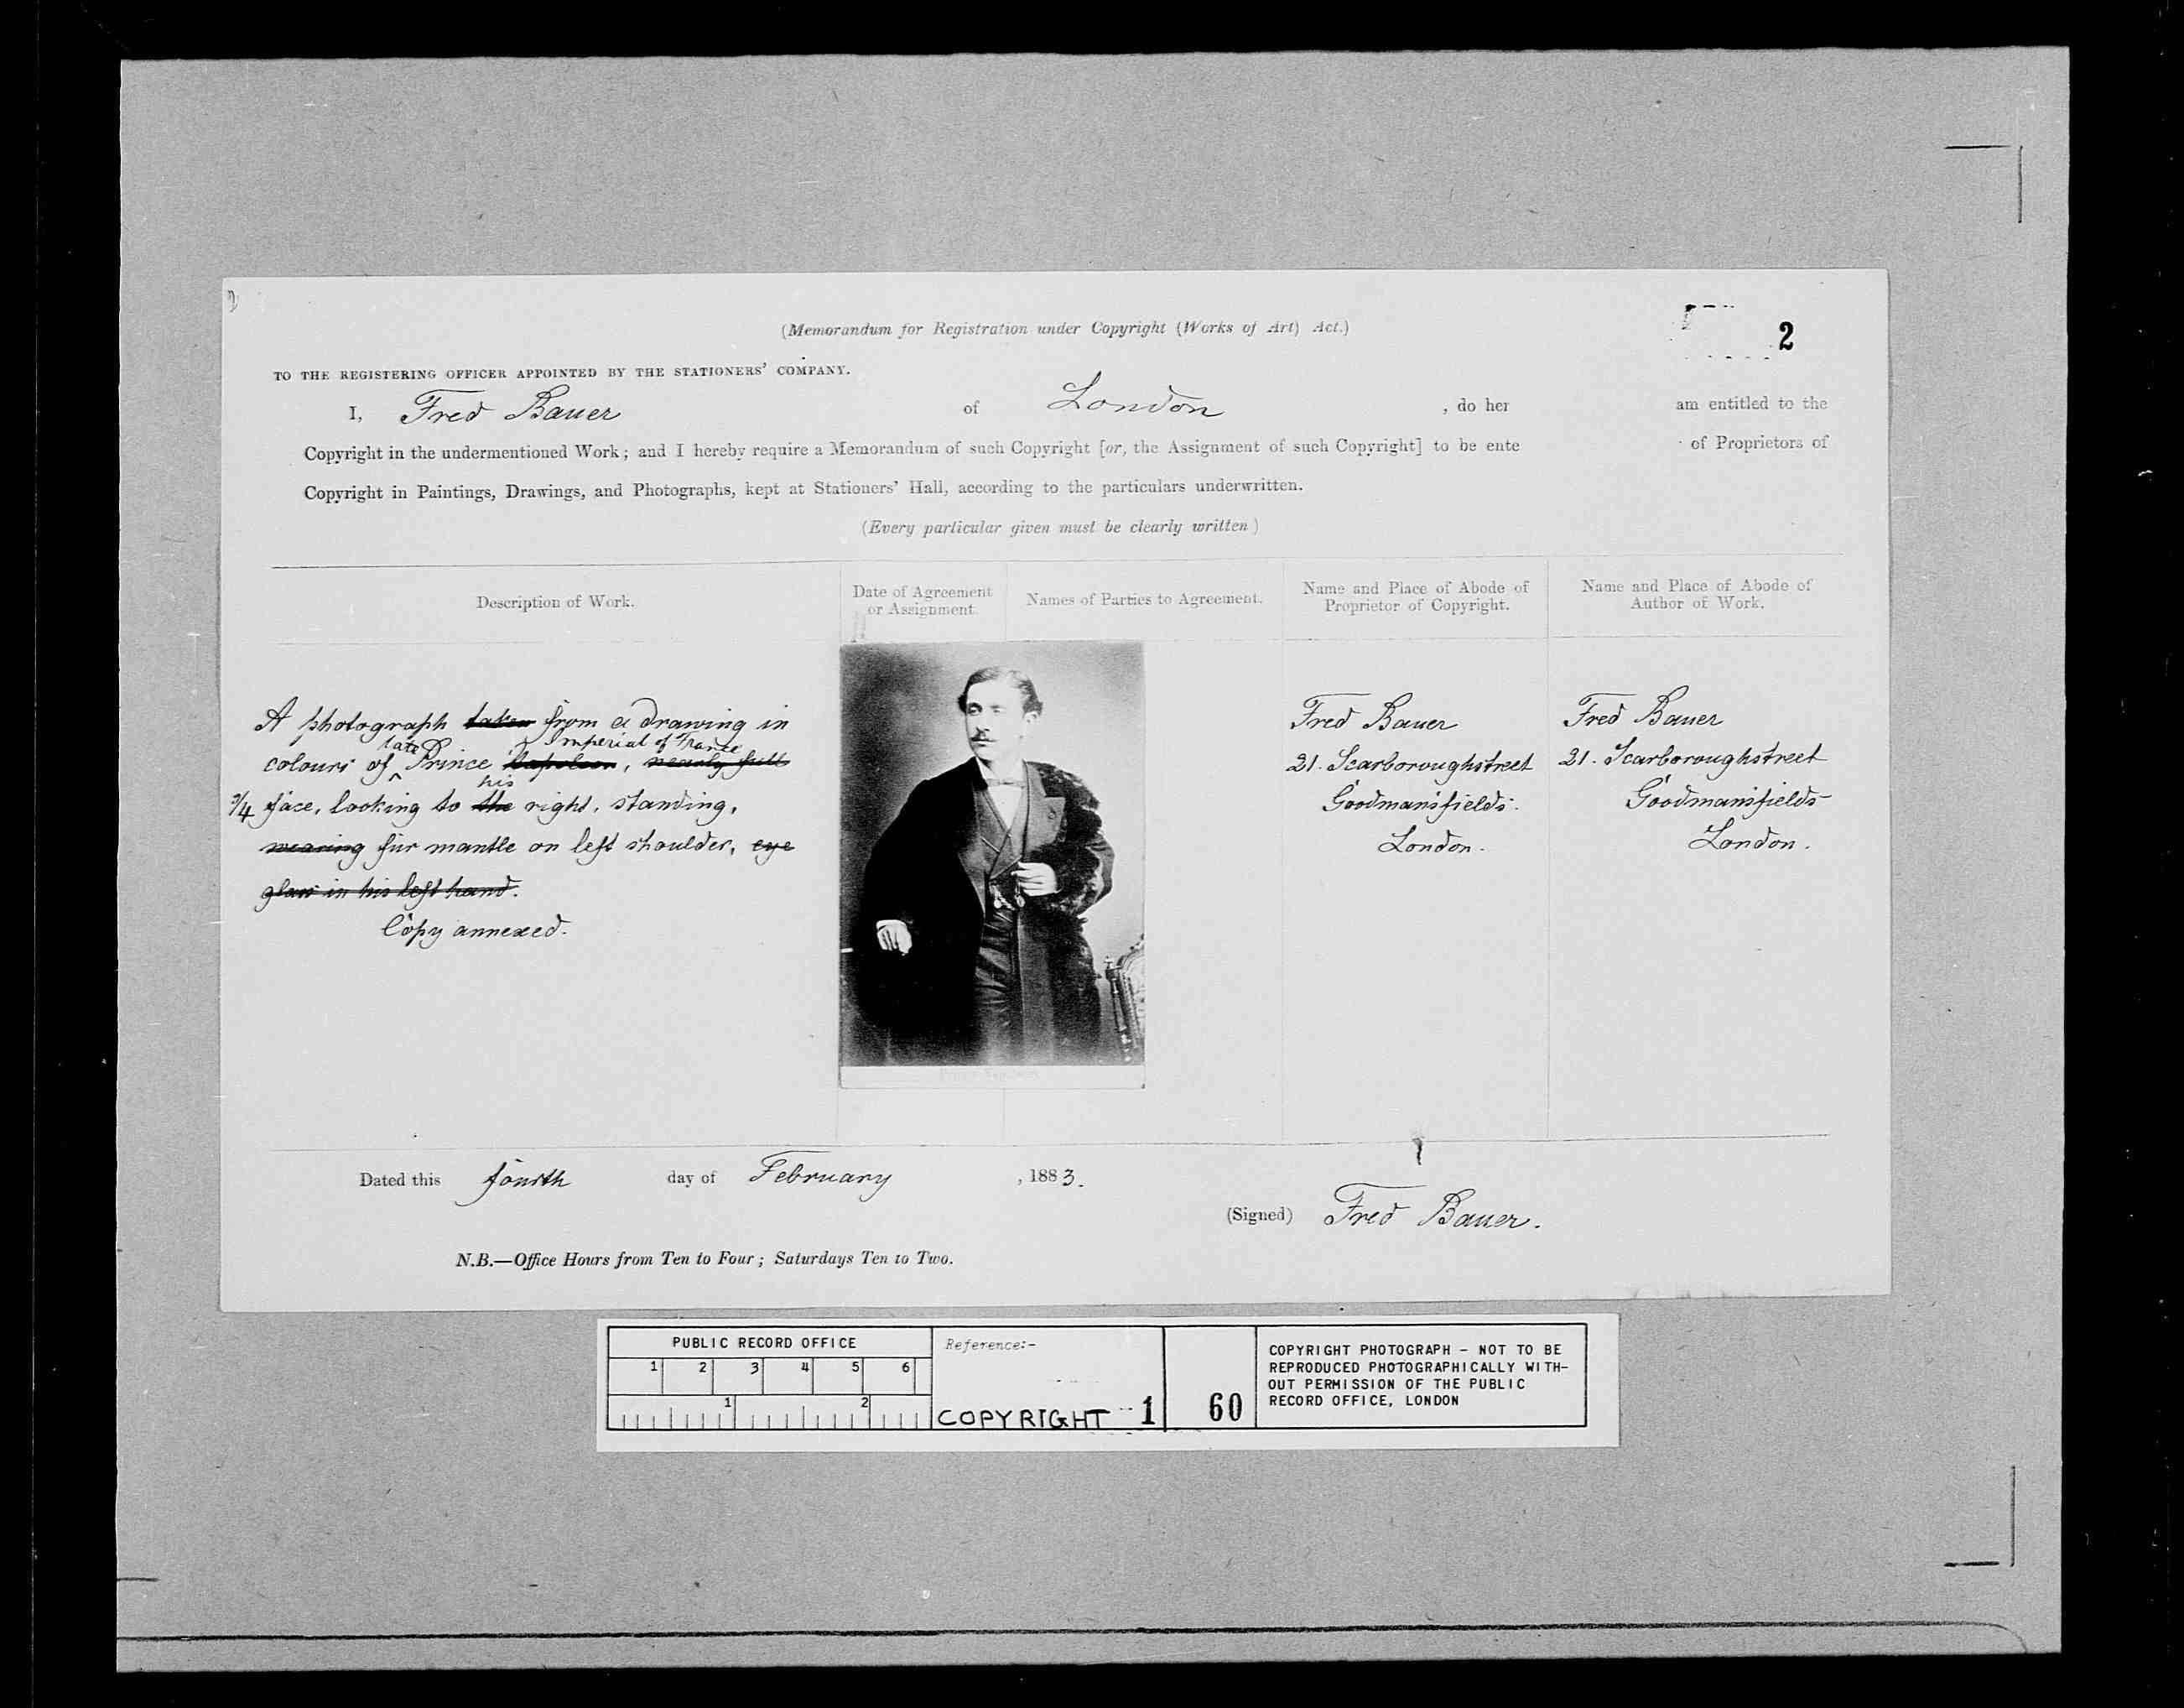 (Memorandum for Registration under Copyright (Works of Art) Act.)
2
TO THE REGISTERING OFFICER APPOINTED BY THE STATIONERS' COMPANY.
I, Fred Bauer of London , do her am entitled to the
Copyright in the undermentioned Work; and I hereby require a Memorandum of such Copyright [or, the Assignment of such Copyright] to be ente of Proprietors of
Copyright in Paintings, Drawings, and Photographs, kept at Stationers' Hall, according to the particulars underwritten.
(Every particular given must be clearly written)
Description of Work.
Date of Agreement
or Assignment.
Names of Parties to Agreement.
Name and Place of Abode of
Proprietor of Copyright.
Name and Place of Abode of
Author of Work.
A photograph taken from a drawing in
late Imperial of France
colours of Prince Napoleon, nearly full
his
3/4 face, looking to the right, standing,
wearing fur mantle on left shoulder, eye
glass in his left hand.
Copy annexed.
Fred Bauer
21. Scarboroughstreet
Goodmansfields.
London.
Fred Bauer
21. Scarboroughstreet
Goodmansfields
London.
Dated this fourth day of February , 1883.
(Signed) Fred Bauer.
N.B.—Office Hours from Ten to Four; Saturdays Ten to Two.
PUBLIC RECORD OFFICE
1 2 3 4 5 6
1 2
Reference:-
COPYRIGHT 1
60
COPYRIGHT PHOTOGRAPH - NOT TO BE
REPRODUCED PHOTOGRAPHICALLY WITH-
OUT PERMISSION OF THE PUBLIC
RECORD OFFICE, LONDON